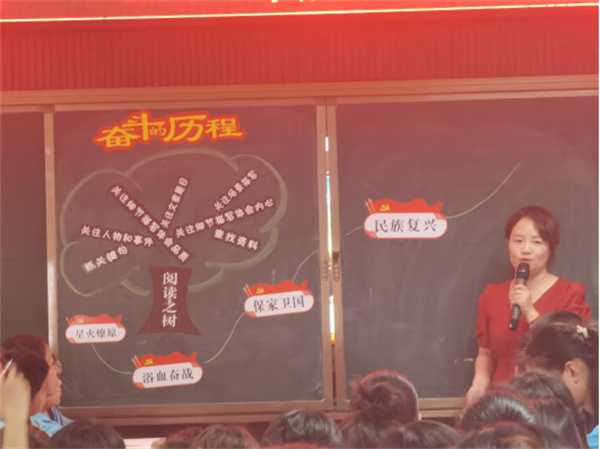 奋斗的历程
关注文章题目
关注场景描写
关注细节描写
关注细节描写体会内心
关注人物和事件
查找资料
抓关键句
阅读之树
星火燎原
浴血奋战
保家卫国
民族复兴